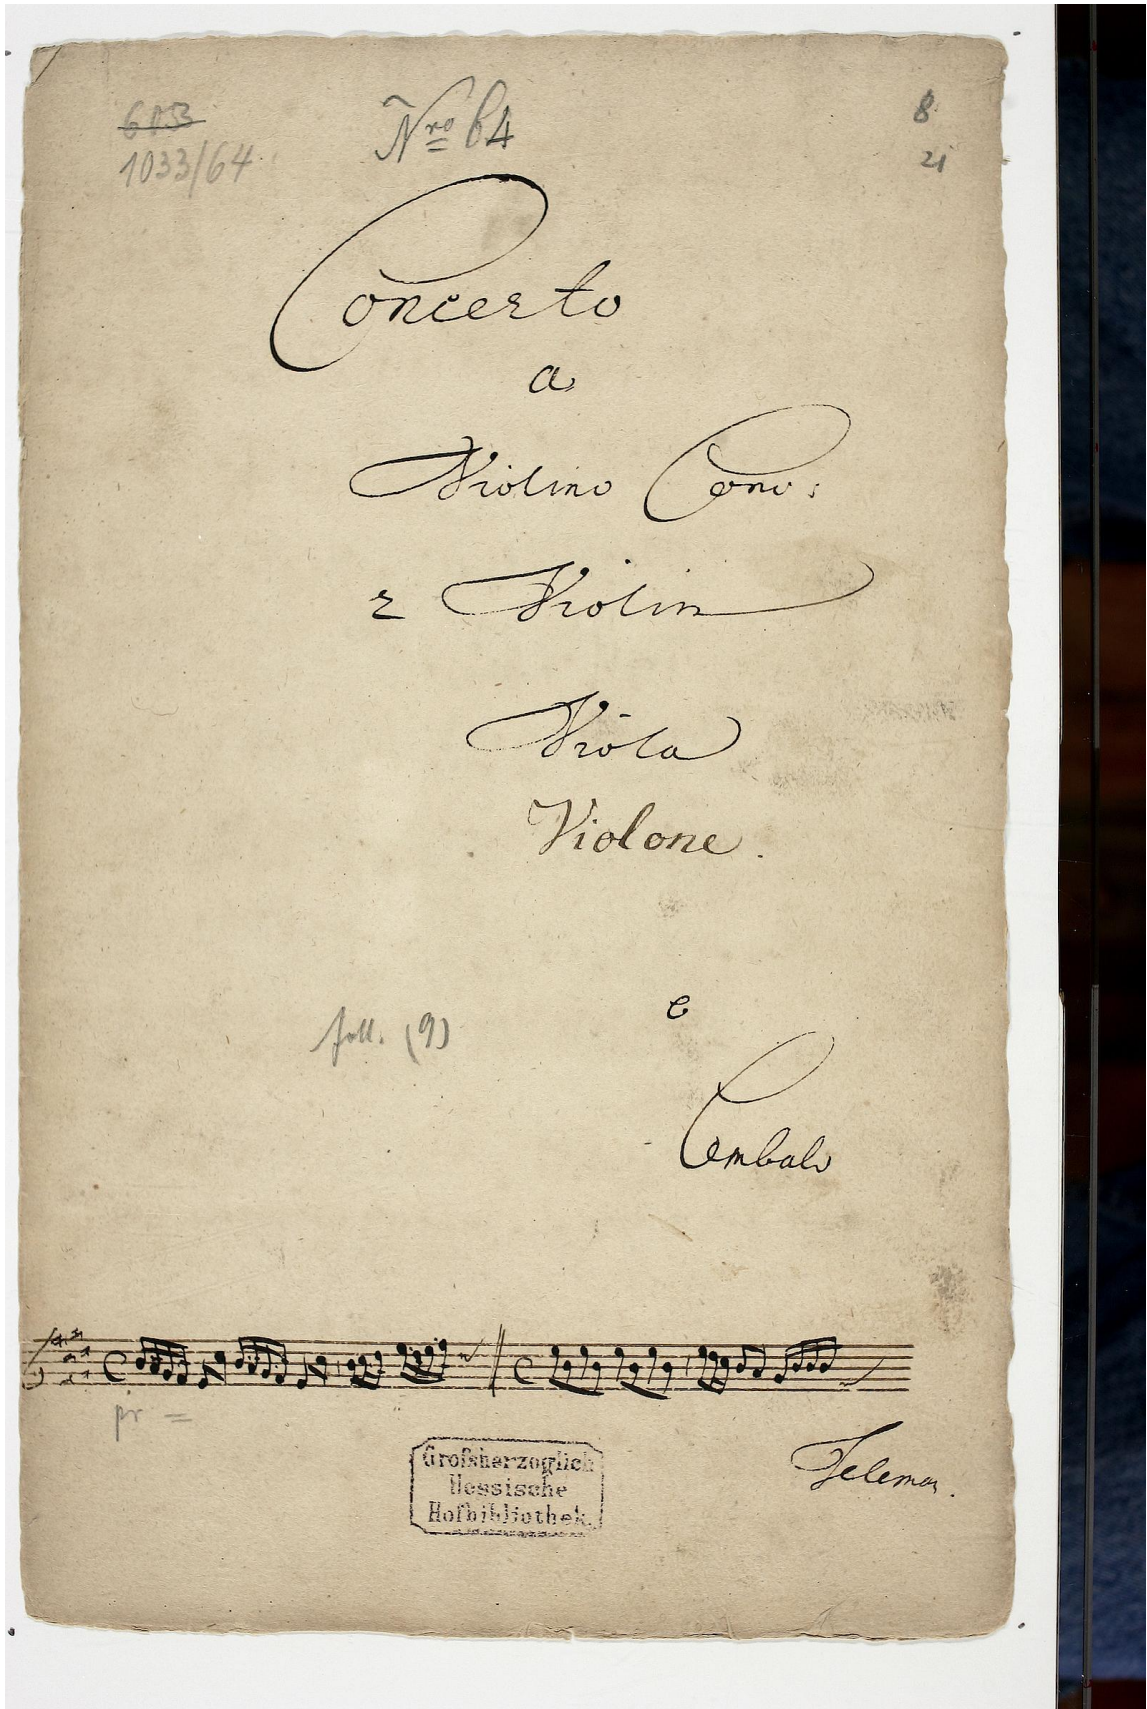 6193
Nro 64
8
1033/64
21
Concerto
a
Violino Conc:
2 Violin
Viola
Violone.
e
foll. (9)
Cembalo
pr =
Großherzoglich
Hessische
Hofbibliothek.
Teleman.